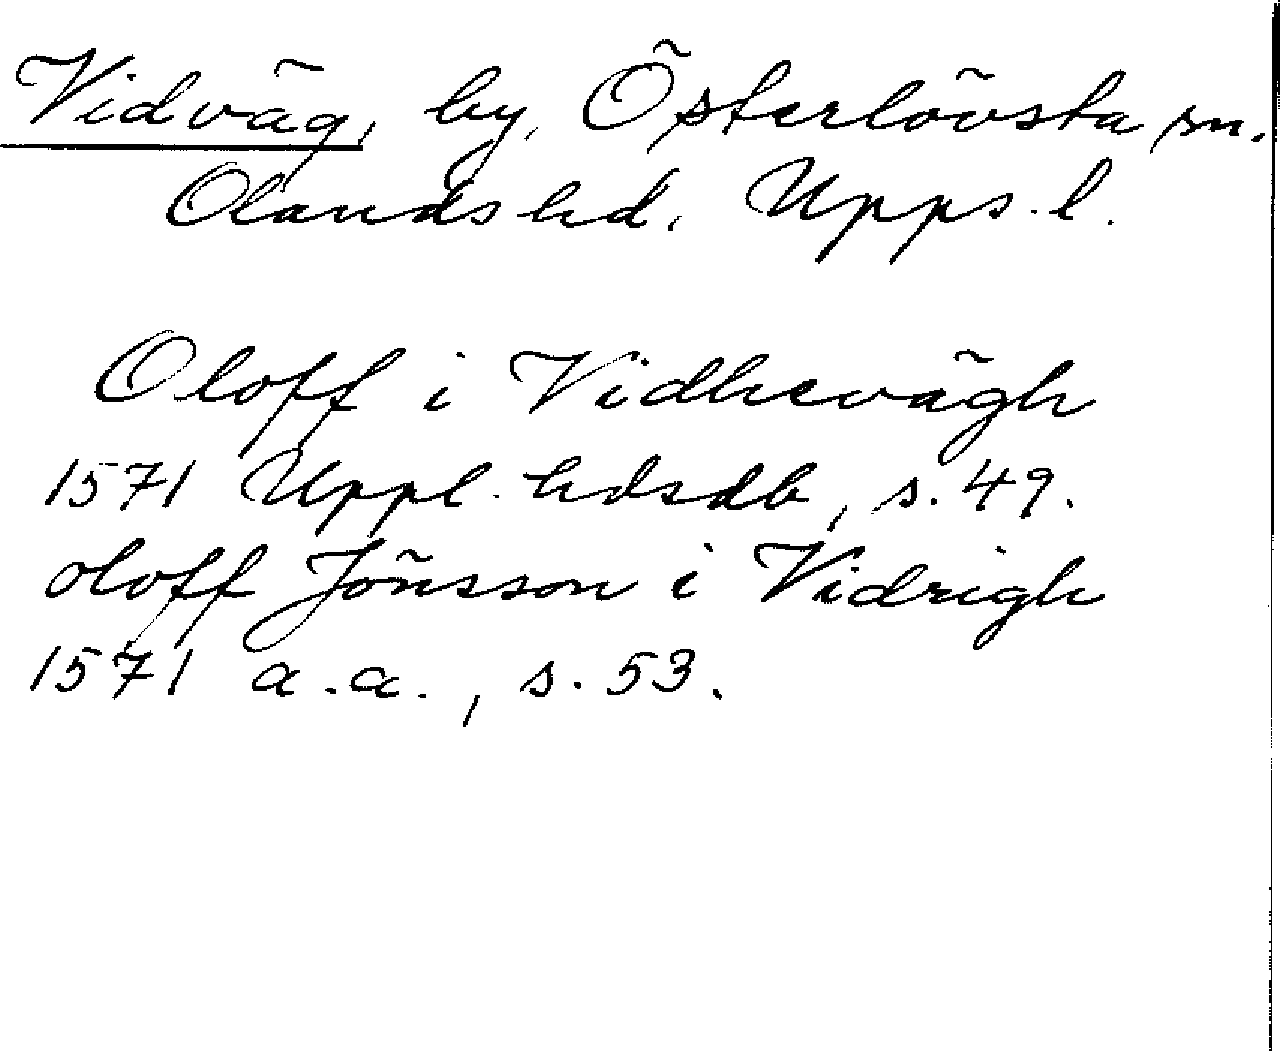 Vidväg, by, Österlövsta sn.
Olands hd. Upps. l.
Oloff i Vidhevägh
1571 Uppl. hdsdb, s. 49.
oloff Jönsson i Vidrigh
1571 a.a., s. 53.